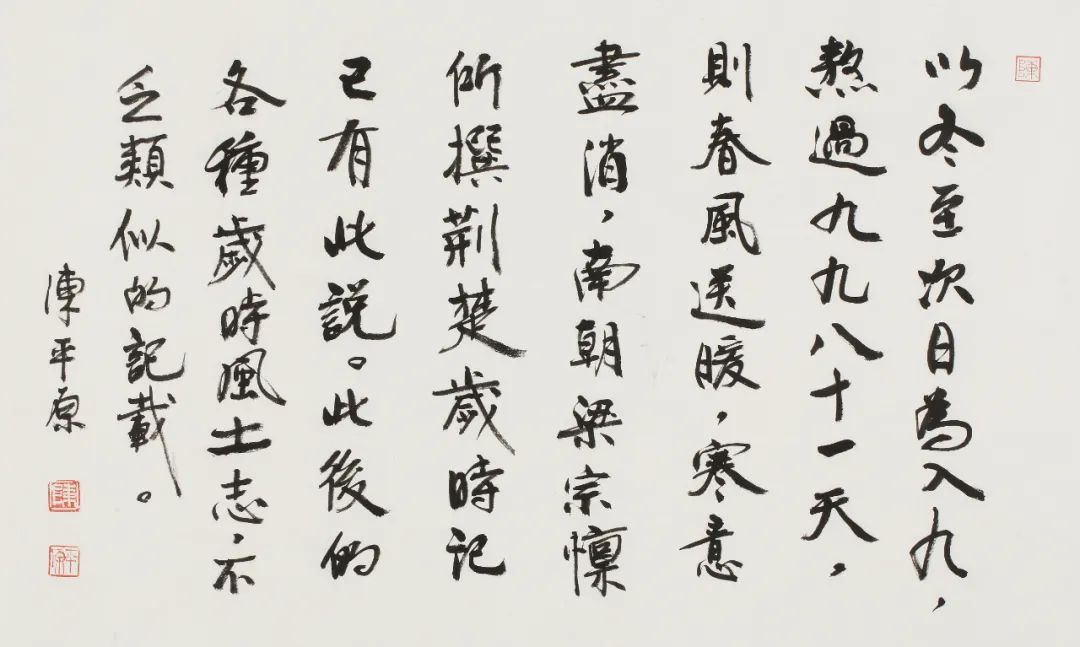 以冬至次日為入九，
熬過九九八十一天，
則春風送暖，寒意
盡消，南朝梁宗懍
所撰荆楚歲時記
已有此説。此後的
各種歲時風土志，不
乏類似的記載。
陳平原